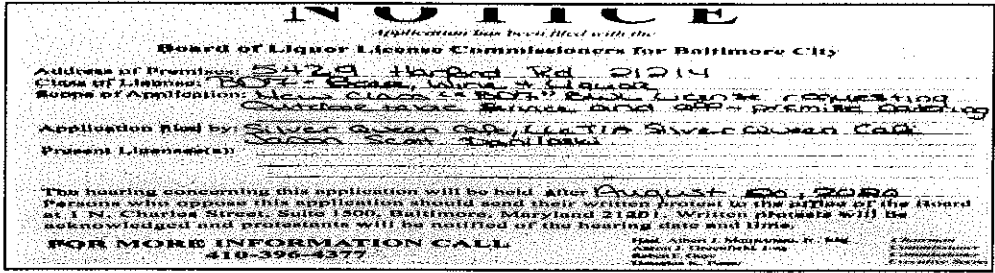 NOTICE
Application has been filed with the
Board of Liquor License Commissioners for Baltimore City
Address of Premises: 5429 Harford Rd 21214
Class of License: "BD7" Beer, Wine & Liquor
Scope of Application: New Class "BD7" License requesting
Outdoor table service and off-premise catering
Application filed by: Silver Queen Cafe, LLC T/A Silver Queen Cafe
Scott
Present Licensee(s):
The hearing concerning this application will be held after August 20, 2020
Persons who oppose this application should send their written protest to the office of the Board
at 1 N. Charles Street, Suite 1500, Baltimore, Maryland 21201. Written protests will be
acknowledged and protestants will be notified of the hearing date and time.
FOR MORE INFORMATION CALL
410-396-4377
Hon. Albert J. Matricciani, Jr., Chairman
Aaron J. Greenfield, Esq. Commissioner
Commissioner